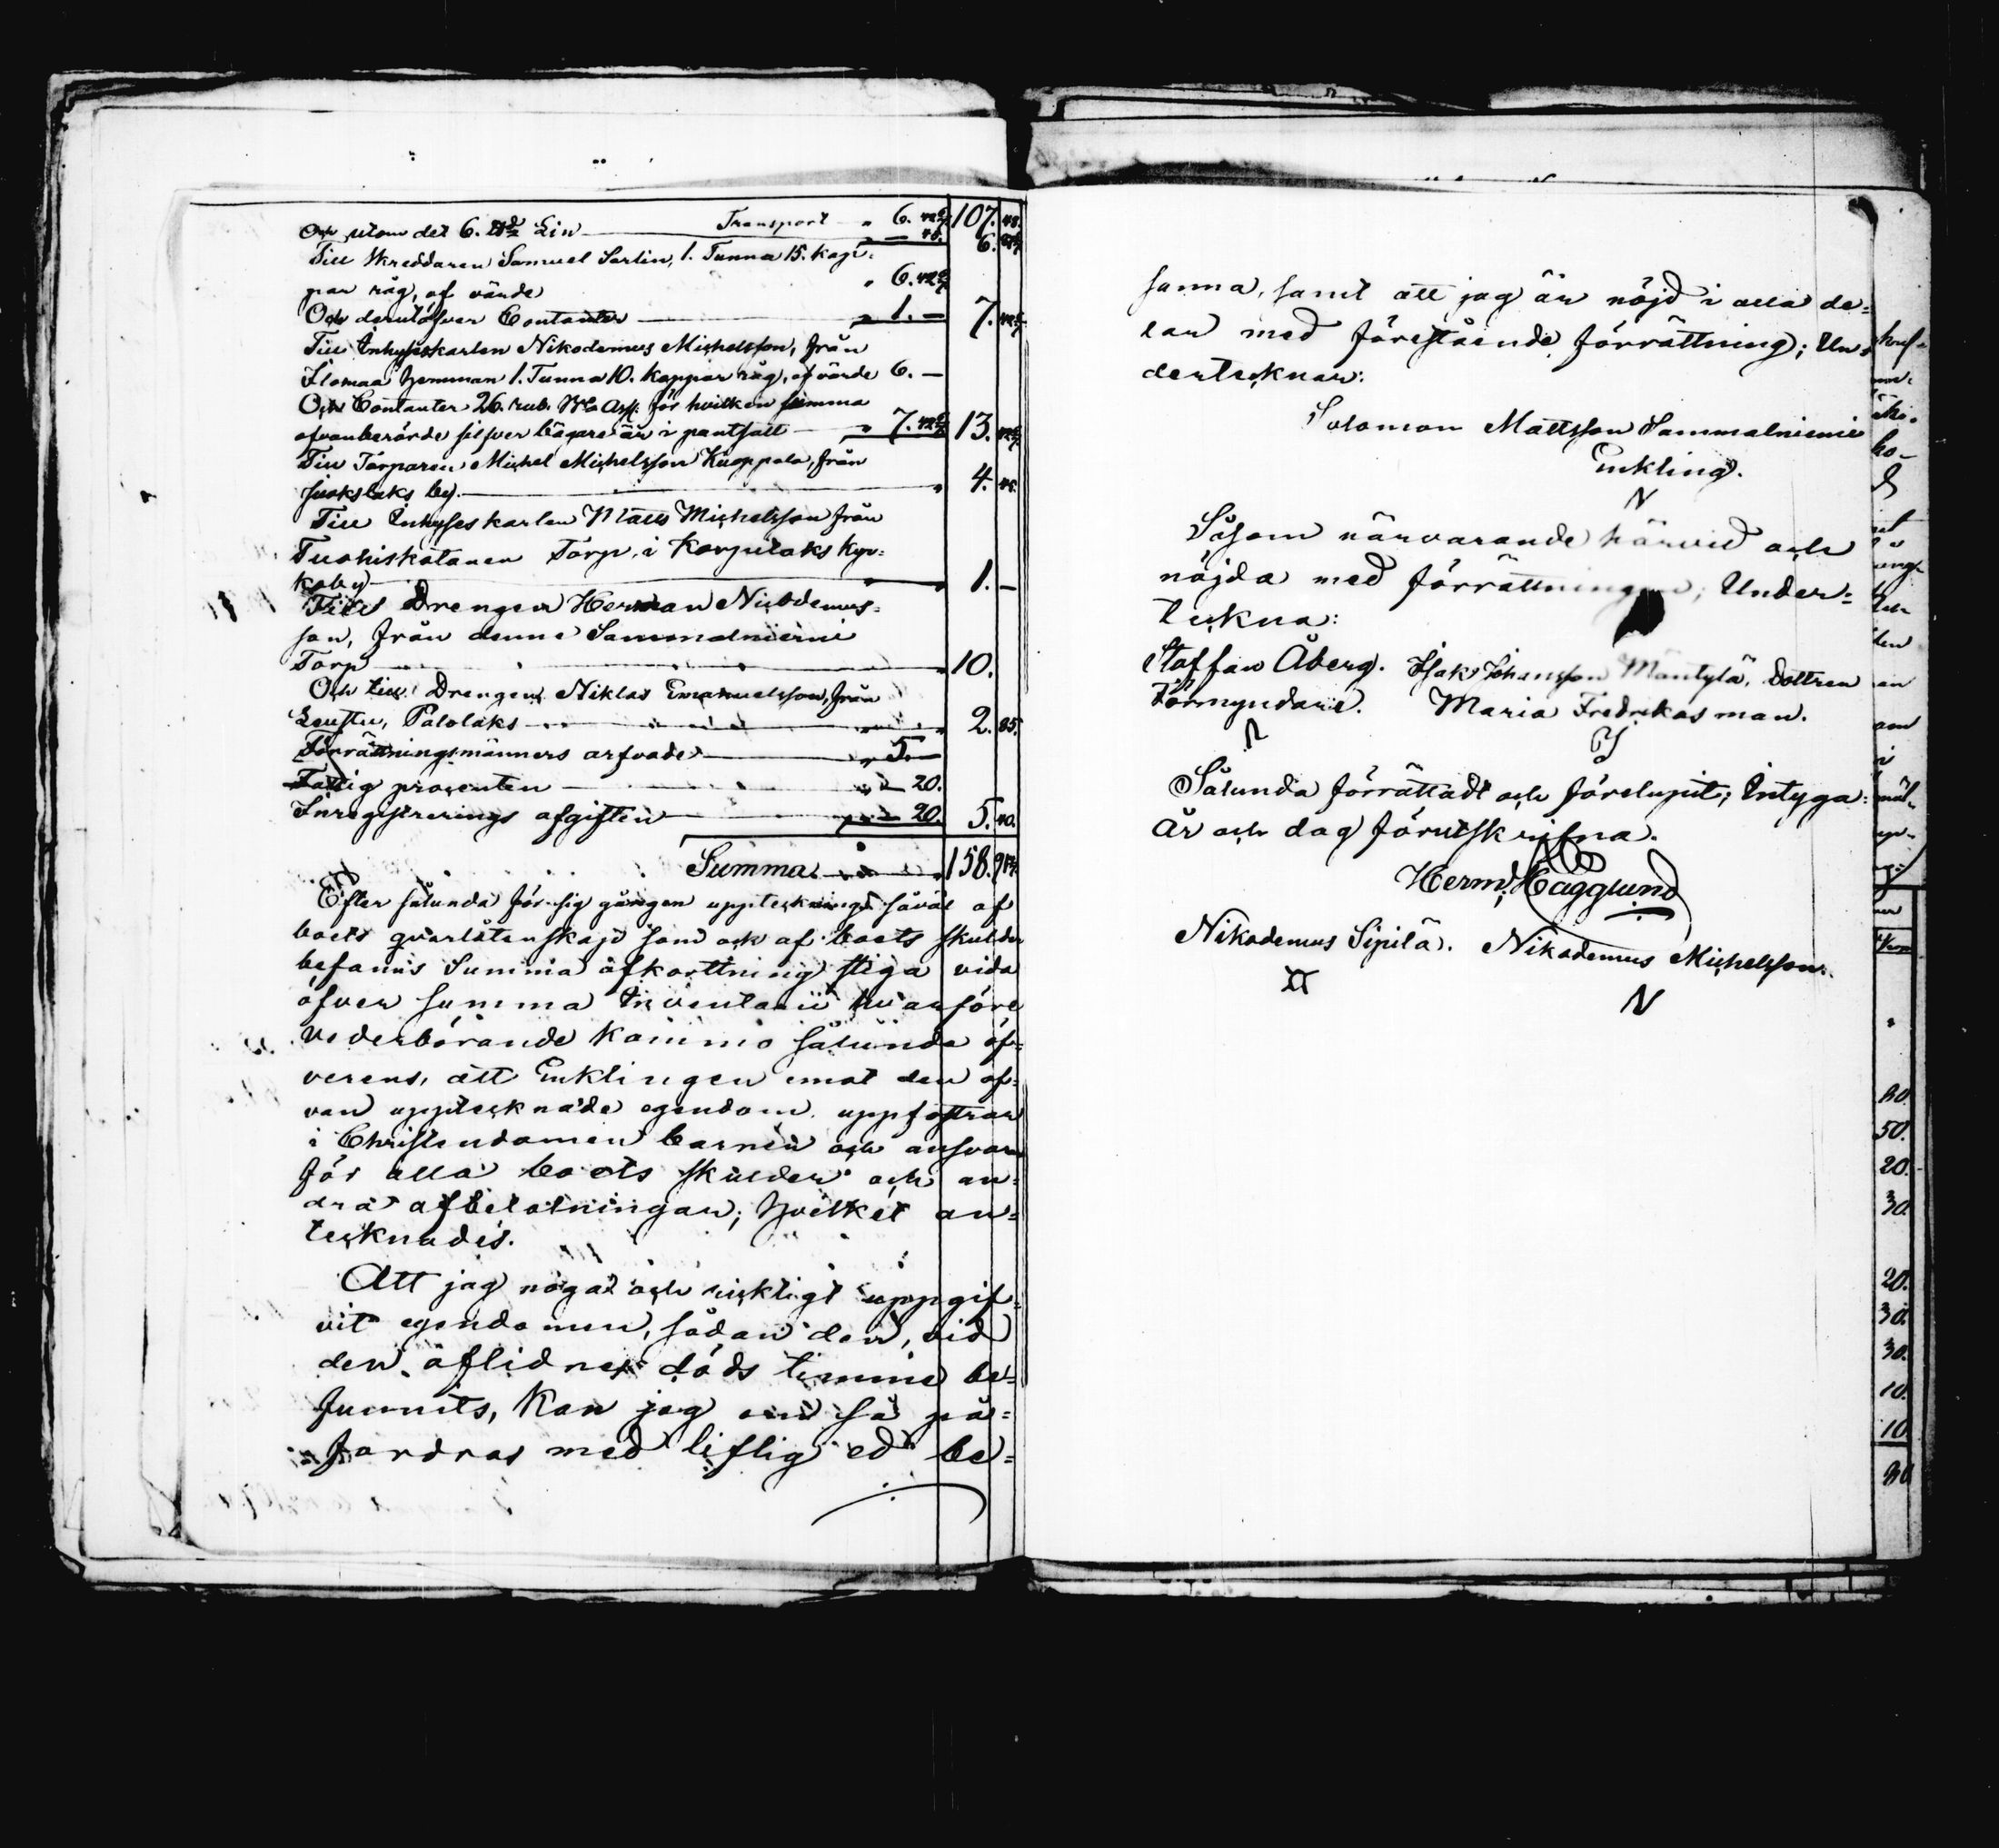 Transport " 6. 42 6/7 107. 48.
Och utom det 6. ℔ Lin — 48. 6.
Till Skreddaren Samuel Sarlin, 1. Tunna 15. kap=
par råg, af värde " 6. 42 6/7
Och derutöfver Contanter " 1. — 7. 42 6/7
Till Inhyseskarlen Nikodemus Michelsson, från
Ilomaa hemman 1. Tunna 10. kappar råg, af värde 6. —
Och Contanter 26. rub. B:co Ass: för hvilken summa
ofvanberörde silfver bägare är i pantsatt " 7. 42 6/7 13. 42 6/7
Till Torparen Michel Michelsson Kuoppala, från
Suokslaks by. " 4.
Till Inhyses karlen Matts Michelsson från
Tuohiskotanen Torp, i Korpilaks kyr=
koby " 1. —
Till Drengen Herman Nikodemus=
son, från denne Sammalniemi
Torp " 10.
Och till Drengen Niklas Emanuelsson, från
Leustu, Palolaks " 2. 85.
Förrättningsmänners arfvode " 5. —
Fattig procenten " — 20.
Inregistrerings afgiften " — 20. 5. 40.
Summa " 158.
Efter sålunda för sig gången uppteckning såväl af
boets qvarlåtenskap som ock af boets skulder
befanns Summa afkorttning stiga vida
öfver summa Inventarii hvarföre
vederbörande kommo sålunda öf=
verens, att Enklingen emot den of=
van upptecknade egendom uppfostrar
i Christendomen barnen och ansvarar
för alla boets skulder och an=
dra afbetalningar; hvilket an=
tecknades.
Att jag nogat och ricktigt uppgif=
vit egendomen, sådan den, vid
den aflidnes döds timme be=
funnits, kan jag om så på=
fordras med liflig ed be=
sanna, samt att jag är nöjd i alla de=
lar med förestående förrättning; Un=
dertecknar:
Salomon Mattsson Sammalniemi
Enkling.
N
Såsom närvarande härvid och
nöjda med förrättningen; Under=
teckna:
Staffan Åberg. Isak Johansson Mäntylä, Dottren
Förmyndare. Maria Fredrikas man.
Sålunda förrättadt och förelupit; Intyga:
År och dag förutskrifna.
Herm: Hägglund
Nikodemus Sipilä. Nikodemus Michelsson.
N
80.
50.
20.
30.
20.
30.
30.
10.
10.